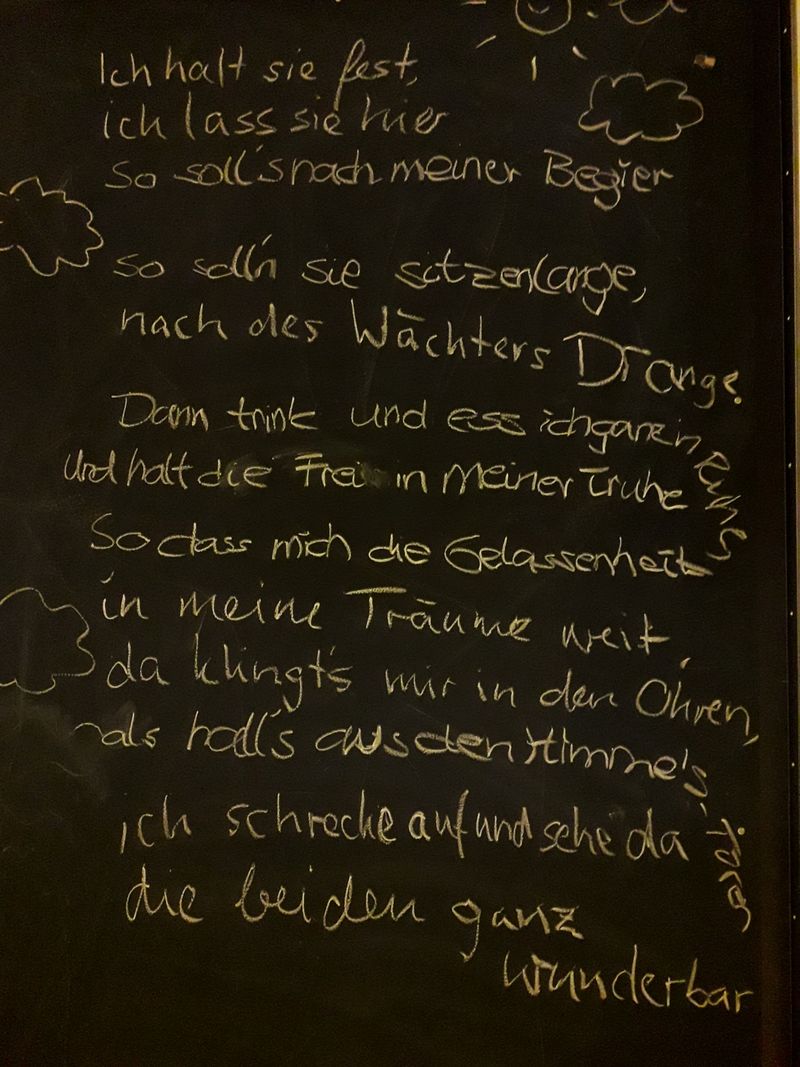 Ich halt sie fest,
ich lass sie hier
so soll's nach meiner Begier
so soll'n sie sitzen lange,
nach des Wächters Drange.
Dann trink und ess ich ganz in Ruhe
Und halt die Frei in meiner Truhe
So dass mich die Gelassenheit
in meine Träume weit,
da klingt's mir in den Ohren,
als hall's aus den Himmels-Toren
ich schrecke auf und sehe da
die beiden ganz
wunderbar